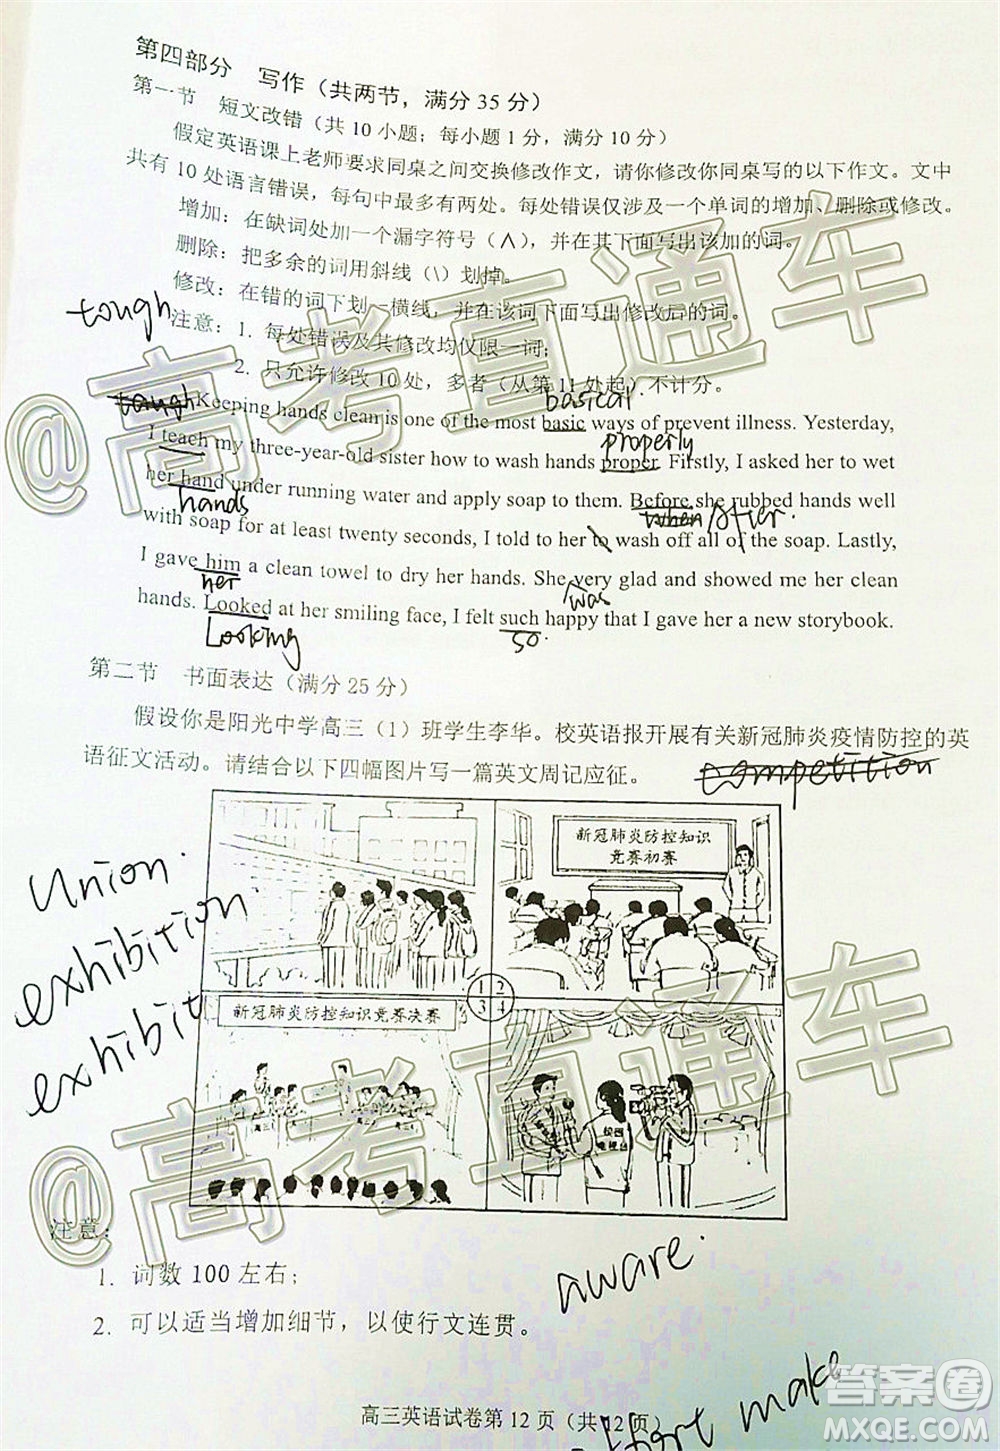 第四部分 写作（共两节，满分 35 分）
第一节 短文改错（共 10 小题；每小题 1 分，满分 10 分）
假定英语课上老师要求同桌之间交换修改作文，请你修改你同桌写的以下作文。文中
共有 10 处语言错误，每句中最多有两处。每处错误仅涉及一个单词的增加、删除或修改。
增加：在缺词处加一个漏字符号（∧），并在其下面写出该加的词。
删除：把多余的词用斜线（\）划掉。
修改：在错的词下划一横线，并在该词下面写出修改后的词。
tough
注意：1. 每处错误及其修改均仅限一词；
2. 只允许修改 10 处，多者（从第 11 处起）不计分。
basical
tough Keeping hands clean is one of the most basic ways of prevent illness. Yesterday,
properly
I teach my three-year-old sister how to wash hands proper. Firstly, I asked her to wet
her hand under running water and apply soap to them. Before she rubbed hands well
hands when/After.
with soap for at least twenty seconds, I told to her to wash off all of the soap. Lastly,
I gave him a clean towel to dry her hands. She very glad and showed me her clean
her was
hands. Looked at her smiling face, I felt such happy that I gave her a new storybook.
Looking so.
第二节 书面表达（满分 25 分）
假设你是阳光中学高三（1）班学生李华。校英语报开展有关新冠肺炎疫情防控的英
语征文活动。请结合以下四幅图片写一篇英文周记应征。
competition
新冠肺炎防控知识
竞赛初赛
Union.
exhibition
exhibit
1 2
3 4
新冠肺炎防控知识竞赛决赛
高三 高三
校园
电视台
注意：
1. 词数 100 左右；
aware.
2. 可以适当增加细节，以使行文连贯。
高三英语试卷第 12 页（共 12 页）
make
@高考直通车
@高考直通车
答案圈
MXQE.COM